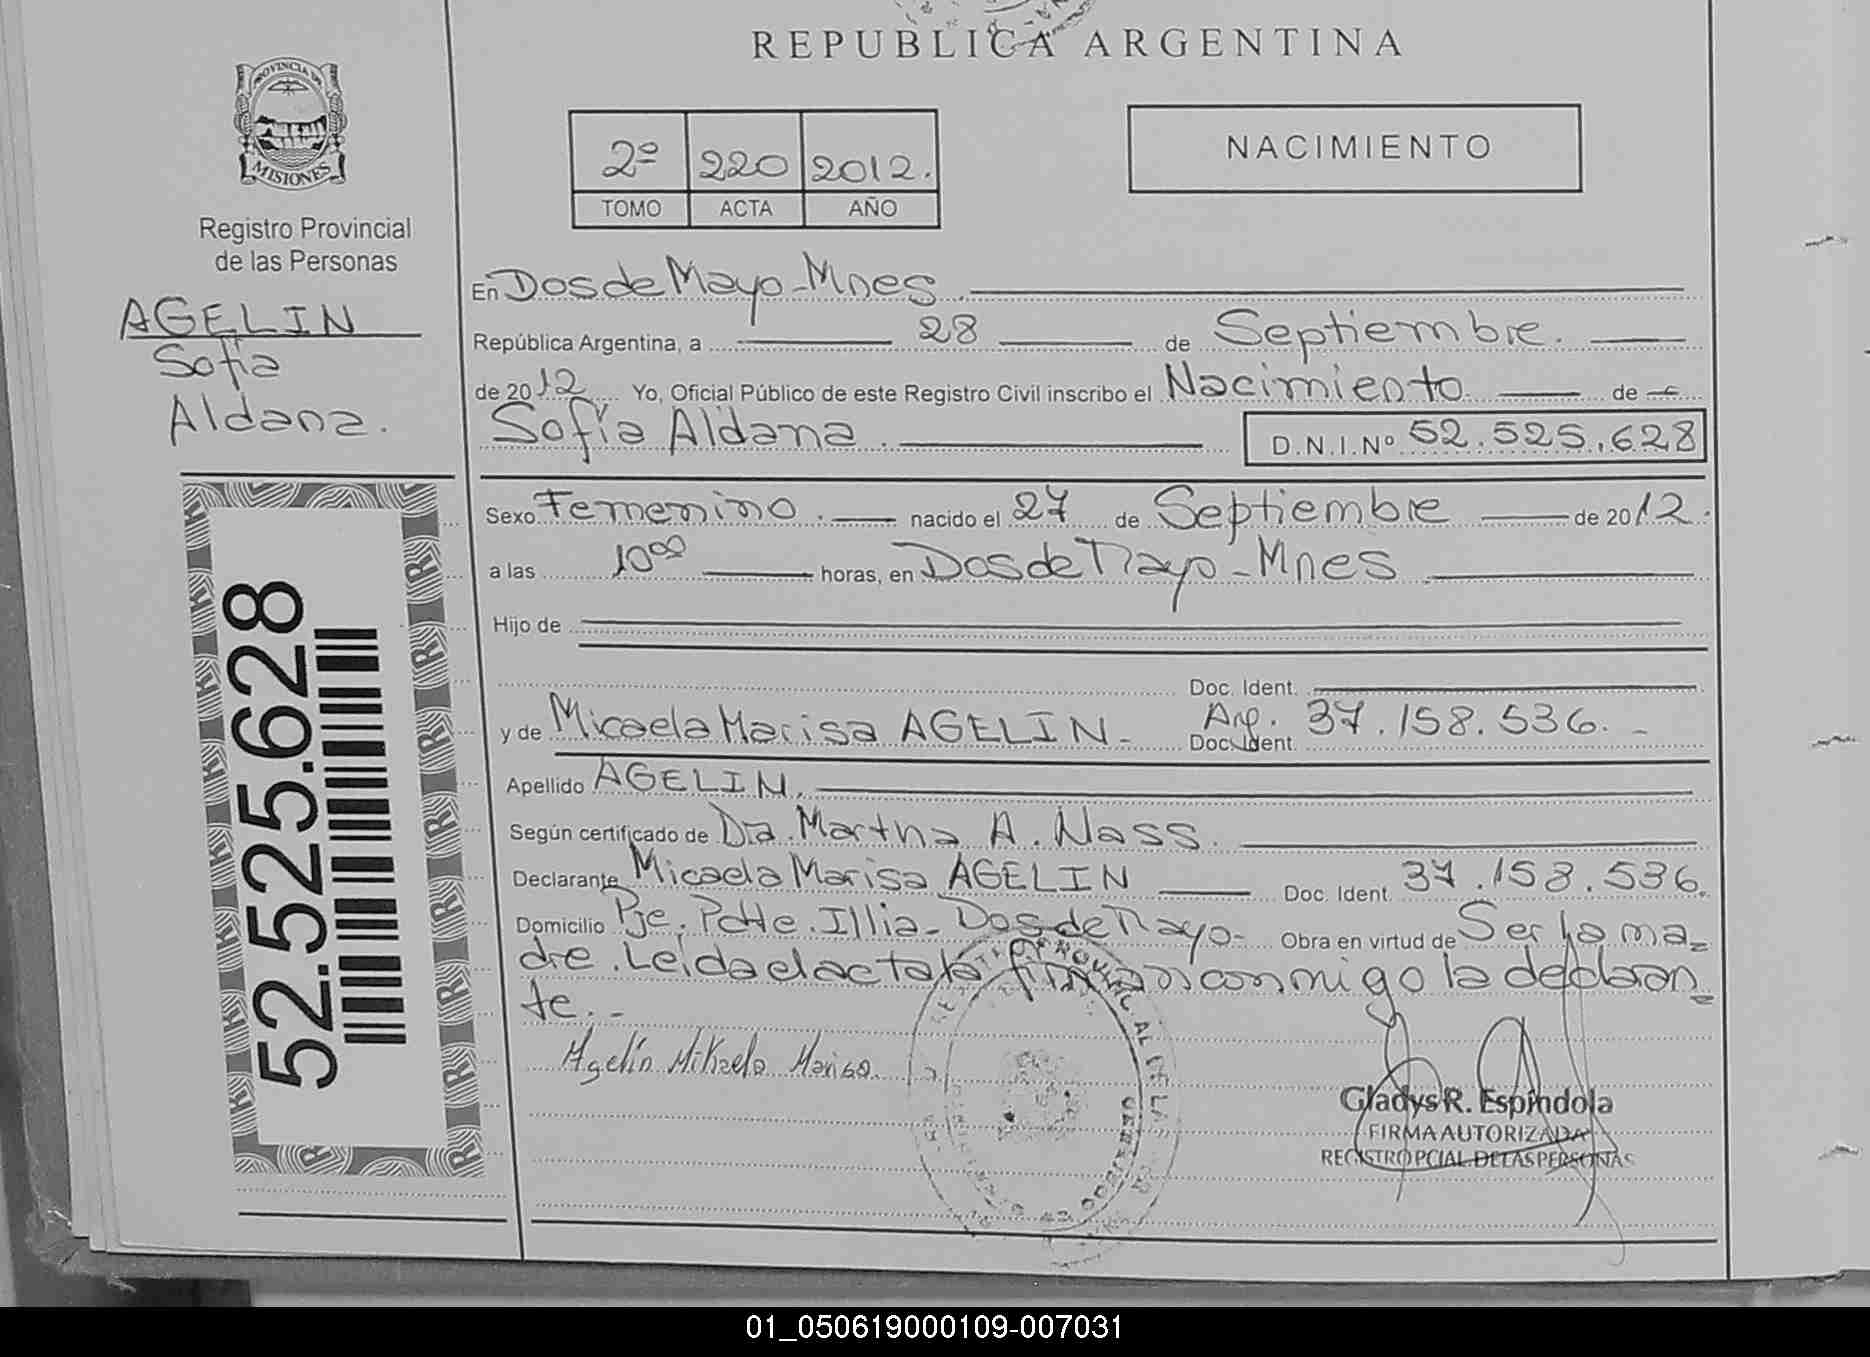 REPUBLICA ARGENTINA
PROVINCIA DE
MISIONES
Registro Provincial
de las Personas
2º 220 2012.
TOMO ACTA AÑO
NACIMIENTO
AGELIN
Sofía
Aldana.
52.525.628
En Dos de Mayo - Mnes
República Argentina, a 28 de Septiembre.
de 2012 Yo, Oficial Público de este Registro Civil inscribo el Nacimiento de
Sofía Aldana. D.N.I.Nº 52.525.628
Sexo Femenino. nacido el 27 de Septiembre de 2012.
a las 10⁰⁰ horas, en Dos de Mayo - Mnes
Hijo de
Doc. Ident.
y de Micaela Marisa AGELIN. Doc. Ident. Arg. 37.158.536.
Apellido AGELIN.
Según certificado de Dra. Martha A. Nass.
Declarante Micaela Marisa AGELIN Doc. Ident. 37.158.536.
Domicilio Pje. Pdte. Illia - Dos de Mayo - Obra en virtud de Ser la ma=
dre. Leida el acta la firman conmigo la declaran=
te. -
Agelín Mikaela Marisa
Gladys R. Espindola
FIRMA AUTORIZADA
REGISTRO PCIAL. DE LAS PERSONAS
01_050619000109-007031